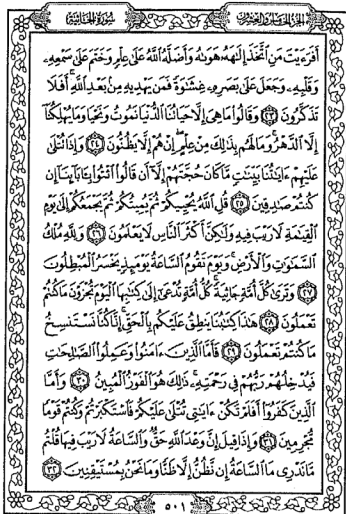 الجزء الخامس والعشرون سورة الجاثية
أَفَرَءَيْتَ مَنِ ٱتَّخَذَ إِلَٰهَهُۥ هَوَىٰهُ وَأَضَلَّهُ ٱللَّهُ عَلَىٰ عِلْمٍ وَخَتَمَ عَلَىٰ سَمْعِهِۦ
وَقَلْبِهِۦ وَجَعَلَ عَلَىٰ بَصَرِهِۦ غِشَٰوَةً فَمَن يَهْدِيهِ مِنۢ بَعْدِ ٱللَّهِ أَفَلَا
تَذَكَّرُونَ ﴿٢٣﴾ وَقَالُوا۟ مَا هِىَ إِلَّا حَيَاتُنَا ٱلدُّنْيَا نَمُوتُ وَنَحْيَا وَمَا يُهْلِكُنَآ
إِلَّا ٱلدَّهْرُ وَمَا لَهُم بِذَٰلِكَ مِنْ عِلْمٍ إِنْ هُمْ إِلَّا يَظُنُّونَ ﴿٢٤﴾ وَإِذَا تُتْلَىٰ
عَلَيْهِمْ ءَايَٰتُنَا بَيِّنَٰتٍ مَّا كَانَ حُجَّتَهُمْ إِلَّآ أَن قَالُوا۟ ٱئْتُوا۟ بِـَٔابَآئِنَآ إِن
كُنتُمْ صَٰدِقِينَ ﴿٢٥﴾ قُلِ ٱللَّهُ يُحْيِيكُمْ ثُمَّ يُمِيتُكُمْ ثُمَّ يَجْمَعُكُمْ إِلَىٰ يَوْمِ
ٱلْقِيَٰمَةِ لَا رَيْبَ فِيهِ وَلَٰكِنَّ أَكْثَرَ ٱلنَّاسِ لَا يَعْلَمُونَ ﴿٢٦﴾ وَلِلَّهِ مُلْكُ
ٱلسَّمَٰوَٰتِ وَٱلْأَرْضِ وَيَوْمَ تَقُومُ ٱلسَّاعَةُ يَوْمَئِذٍ يَخْسَرُ ٱلْمُبْطِلُونَ
﴿٢٧﴾ وَتَرَىٰ كُلَّ أُمَّةٍ جَاثِيَةً كُلُّ أُمَّةٍ تُدْعَىٰٓ إِلَىٰ كِتَٰبِهَا ٱلْيَوْمَ تُجْزَوْنَ مَا كُنتُمْ
تَعْمَلُونَ ﴿٢٨﴾ هَٰذَا كِتَٰبُنَا يَنطِقُ عَلَيْكُم بِٱلْحَقِّ إِنَّا كُنَّا نَسْتَنسِخُ
مَا كُنتُمْ تَعْمَلُونَ ﴿٢٩﴾ فَأَمَّا ٱلَّذِينَ ءَامَنُوا۟ وَعَمِلُوا۟ ٱلصَّٰلِحَٰتِ
فَيُدْخِلُهُمْ رَبُّهُمْ فِى رَحْمَتِهِۦ ذَٰلِكَ هُوَ ٱلْفَوْزُ ٱلْمُبِينُ ﴿٣٠﴾ وَأَمَّا
ٱلَّذِينَ كَفَرُوٓا۟ أَفَلَمْ تَكُنْ ءَايَٰتِى تُتْلَىٰ عَلَيْكُمْ فَٱسْتَكْبَرْتُمْ وَكُنتُمْ قَوْمًا
مُّجْرِمِينَ ﴿٣١﴾ وَإِذَا قِيلَ إِنَّ وَعْدَ ٱللَّهِ حَقٌّ وَٱلسَّاعَةُ لَا رَيْبَ فِيهَا قُلْتُم
مَّا نَدْرِى مَا ٱلسَّاعَةُ إِن نَّظُنُّ إِلَّا ظَنًّا وَمَا نَحْنُ بِمُسْتَيْقِنِينَ ﴿٣٢﴾
٥٠١